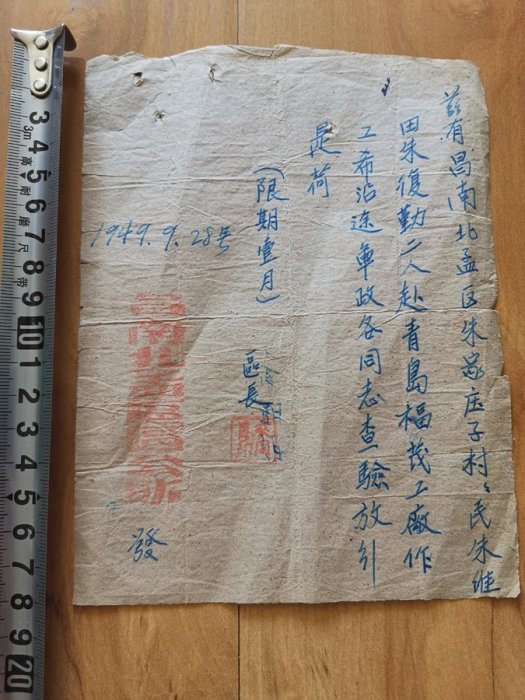 茲有昌南北孟区朱家庄子村々民朱维
田朱復勤二人赴青島福茂工廠作
工希沿途軍政各同志查驗放行
是荷
(限期壹月)
區長
1949.9.28号
發
3m
高
耐
磨
尺
带
3 4 5 6 7 8 9 10 1 2 3 4 5 6 7 8 9 20